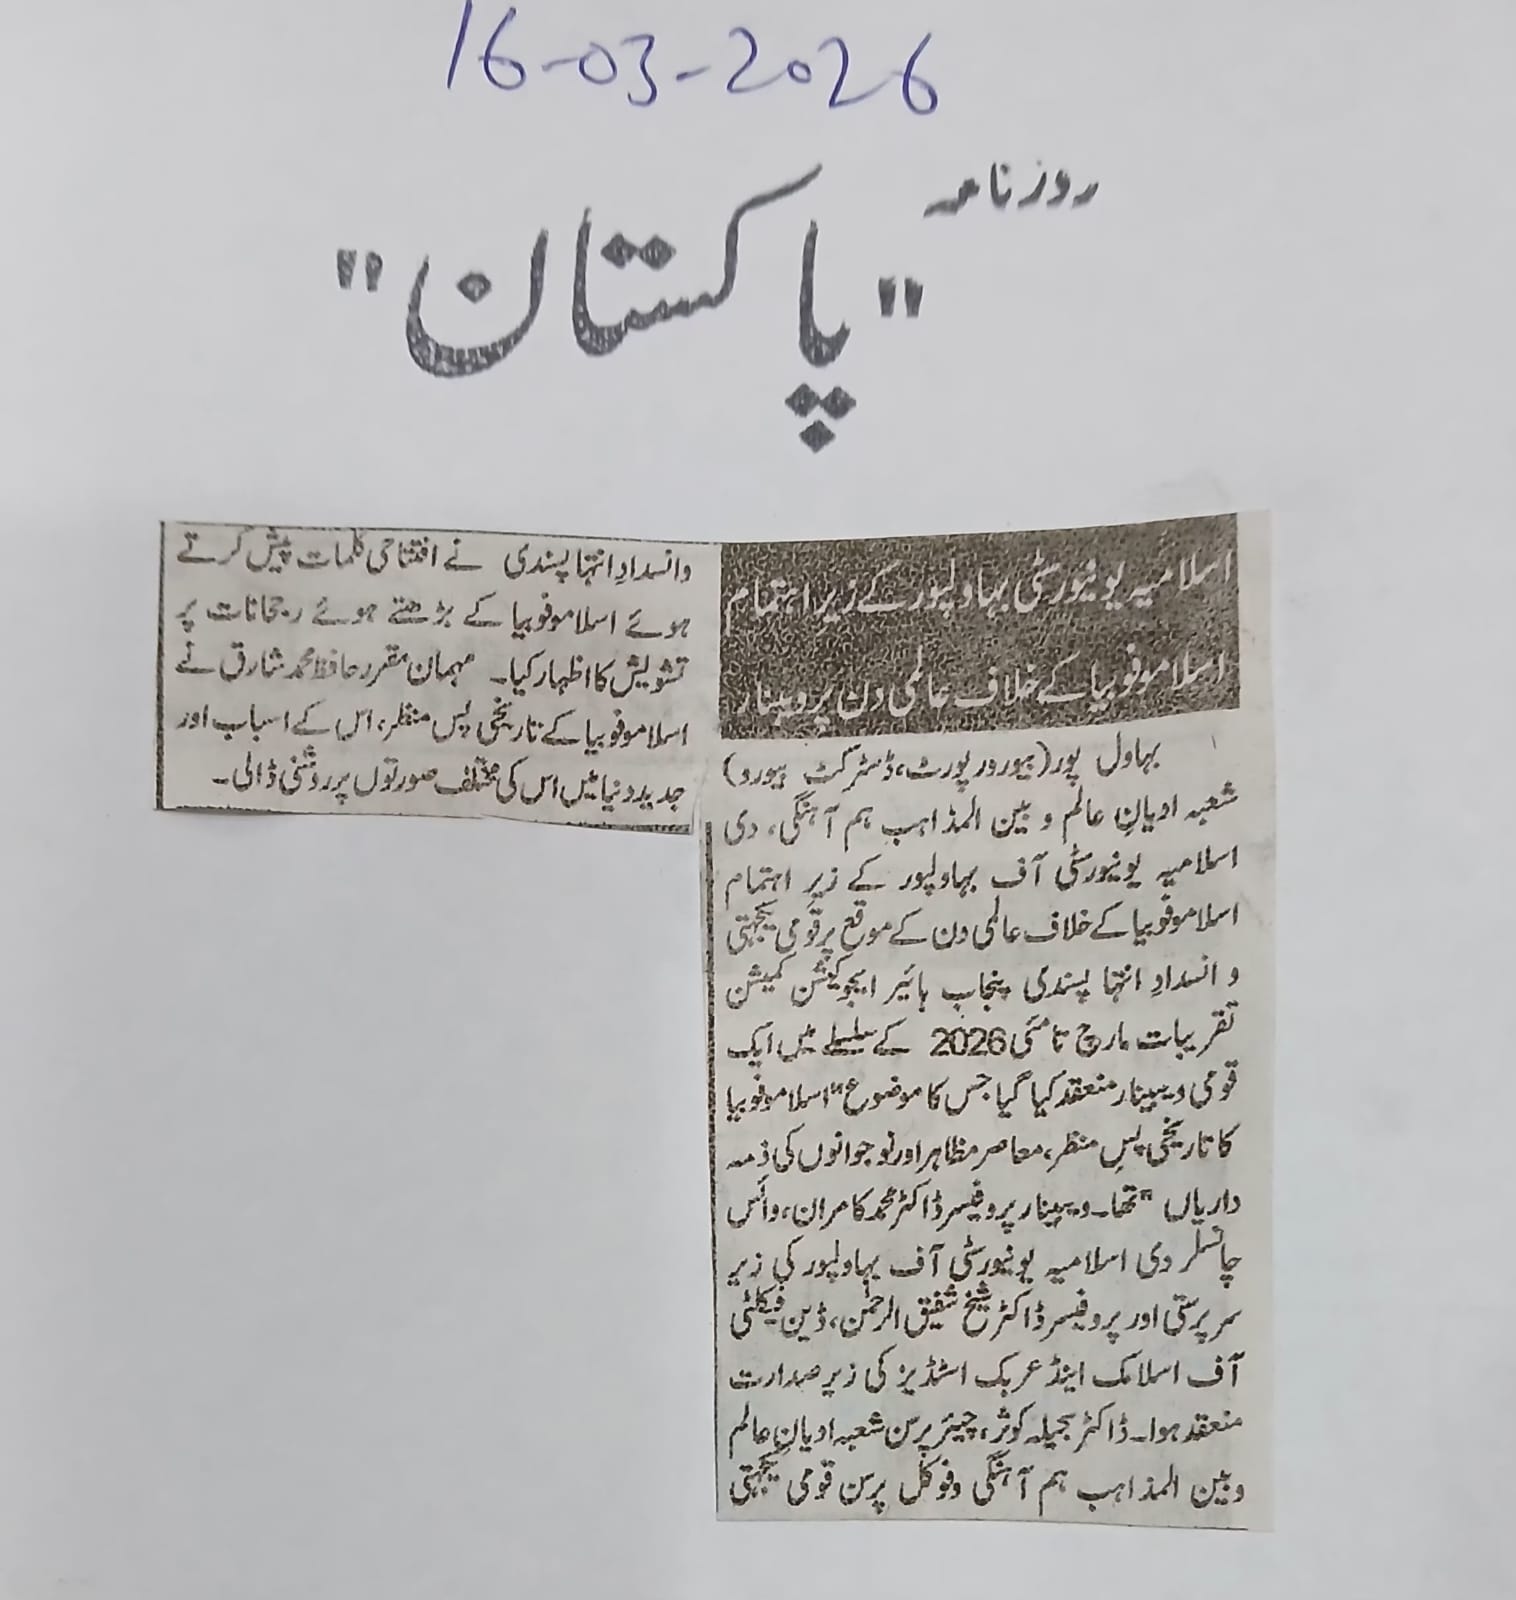 16-03-2026
روزنامہ
"پاکستان"
اسلامیہ یونیورسٹی بہاولپور کے زیر اہتمام
اسلاموفوبیا کے خلاف عالمی دن پر ویبینار
بہاول پور (بیورو رپورٹ، ڈسٹرکٹ بیورو)
شعبہ ادیانِ عالم و بین المذاہب ہم آہنگی، دی
اسلامیہ یونیورسٹی آف بہاولپور کے زیر اہتمام
اسلاموفوبیا کے خلاف عالمی دن کے موقع پر قومی یکجہتی
و انسدادِ انتہا پسندی پنجاب ہائیر ایجوکیشن کمیشن
تقریبات مارچ تا مئی 2026 کے سلسلے میں ایک
قومی ویبینار منعقد کیا گیا جس کا موضوع "اسلاموفوبیا
کا تاریخی پس منظر، معاصر مظاہر اور نوجوانوں کی ذمہ
داریاں" تھا۔ ویبینار پروفیسر ڈاکٹر محمد کامران، وائس
چانسلر دی اسلامیہ یونیورسٹی آف بہاولپور کی زیر
سرپرستی اور پروفیسر ڈاکٹر شیخ شفیق الرحمٰن، ڈین فیکلٹی
آف اسلامک اینڈ عربک اسٹڈیز کی زیر صدارت
منعقد ہوا۔ ڈاکٹر سجیلہ کوثر، چیئرپرسن شعبہ ادیانِ عالم
و بین المذاہب ہم آہنگی و فوکل پرسن قومی یکجہتی
و انسدادِ انتہا پسندی نے افتتاحی کلمات پیش کرتے
ہوئے اسلاموفوبیا کے بڑھتے ہوئے رجحانات پر
تشویش کا اظہار کیا۔ مہمان مقرر حافظ محمد شارق نے
اسلاموفوبیا کے تاریخی پس منظر، اس کے اسباب اور
جدید دنیا میں اس کی مختلف صورتوں پر روشنی ڈالی۔